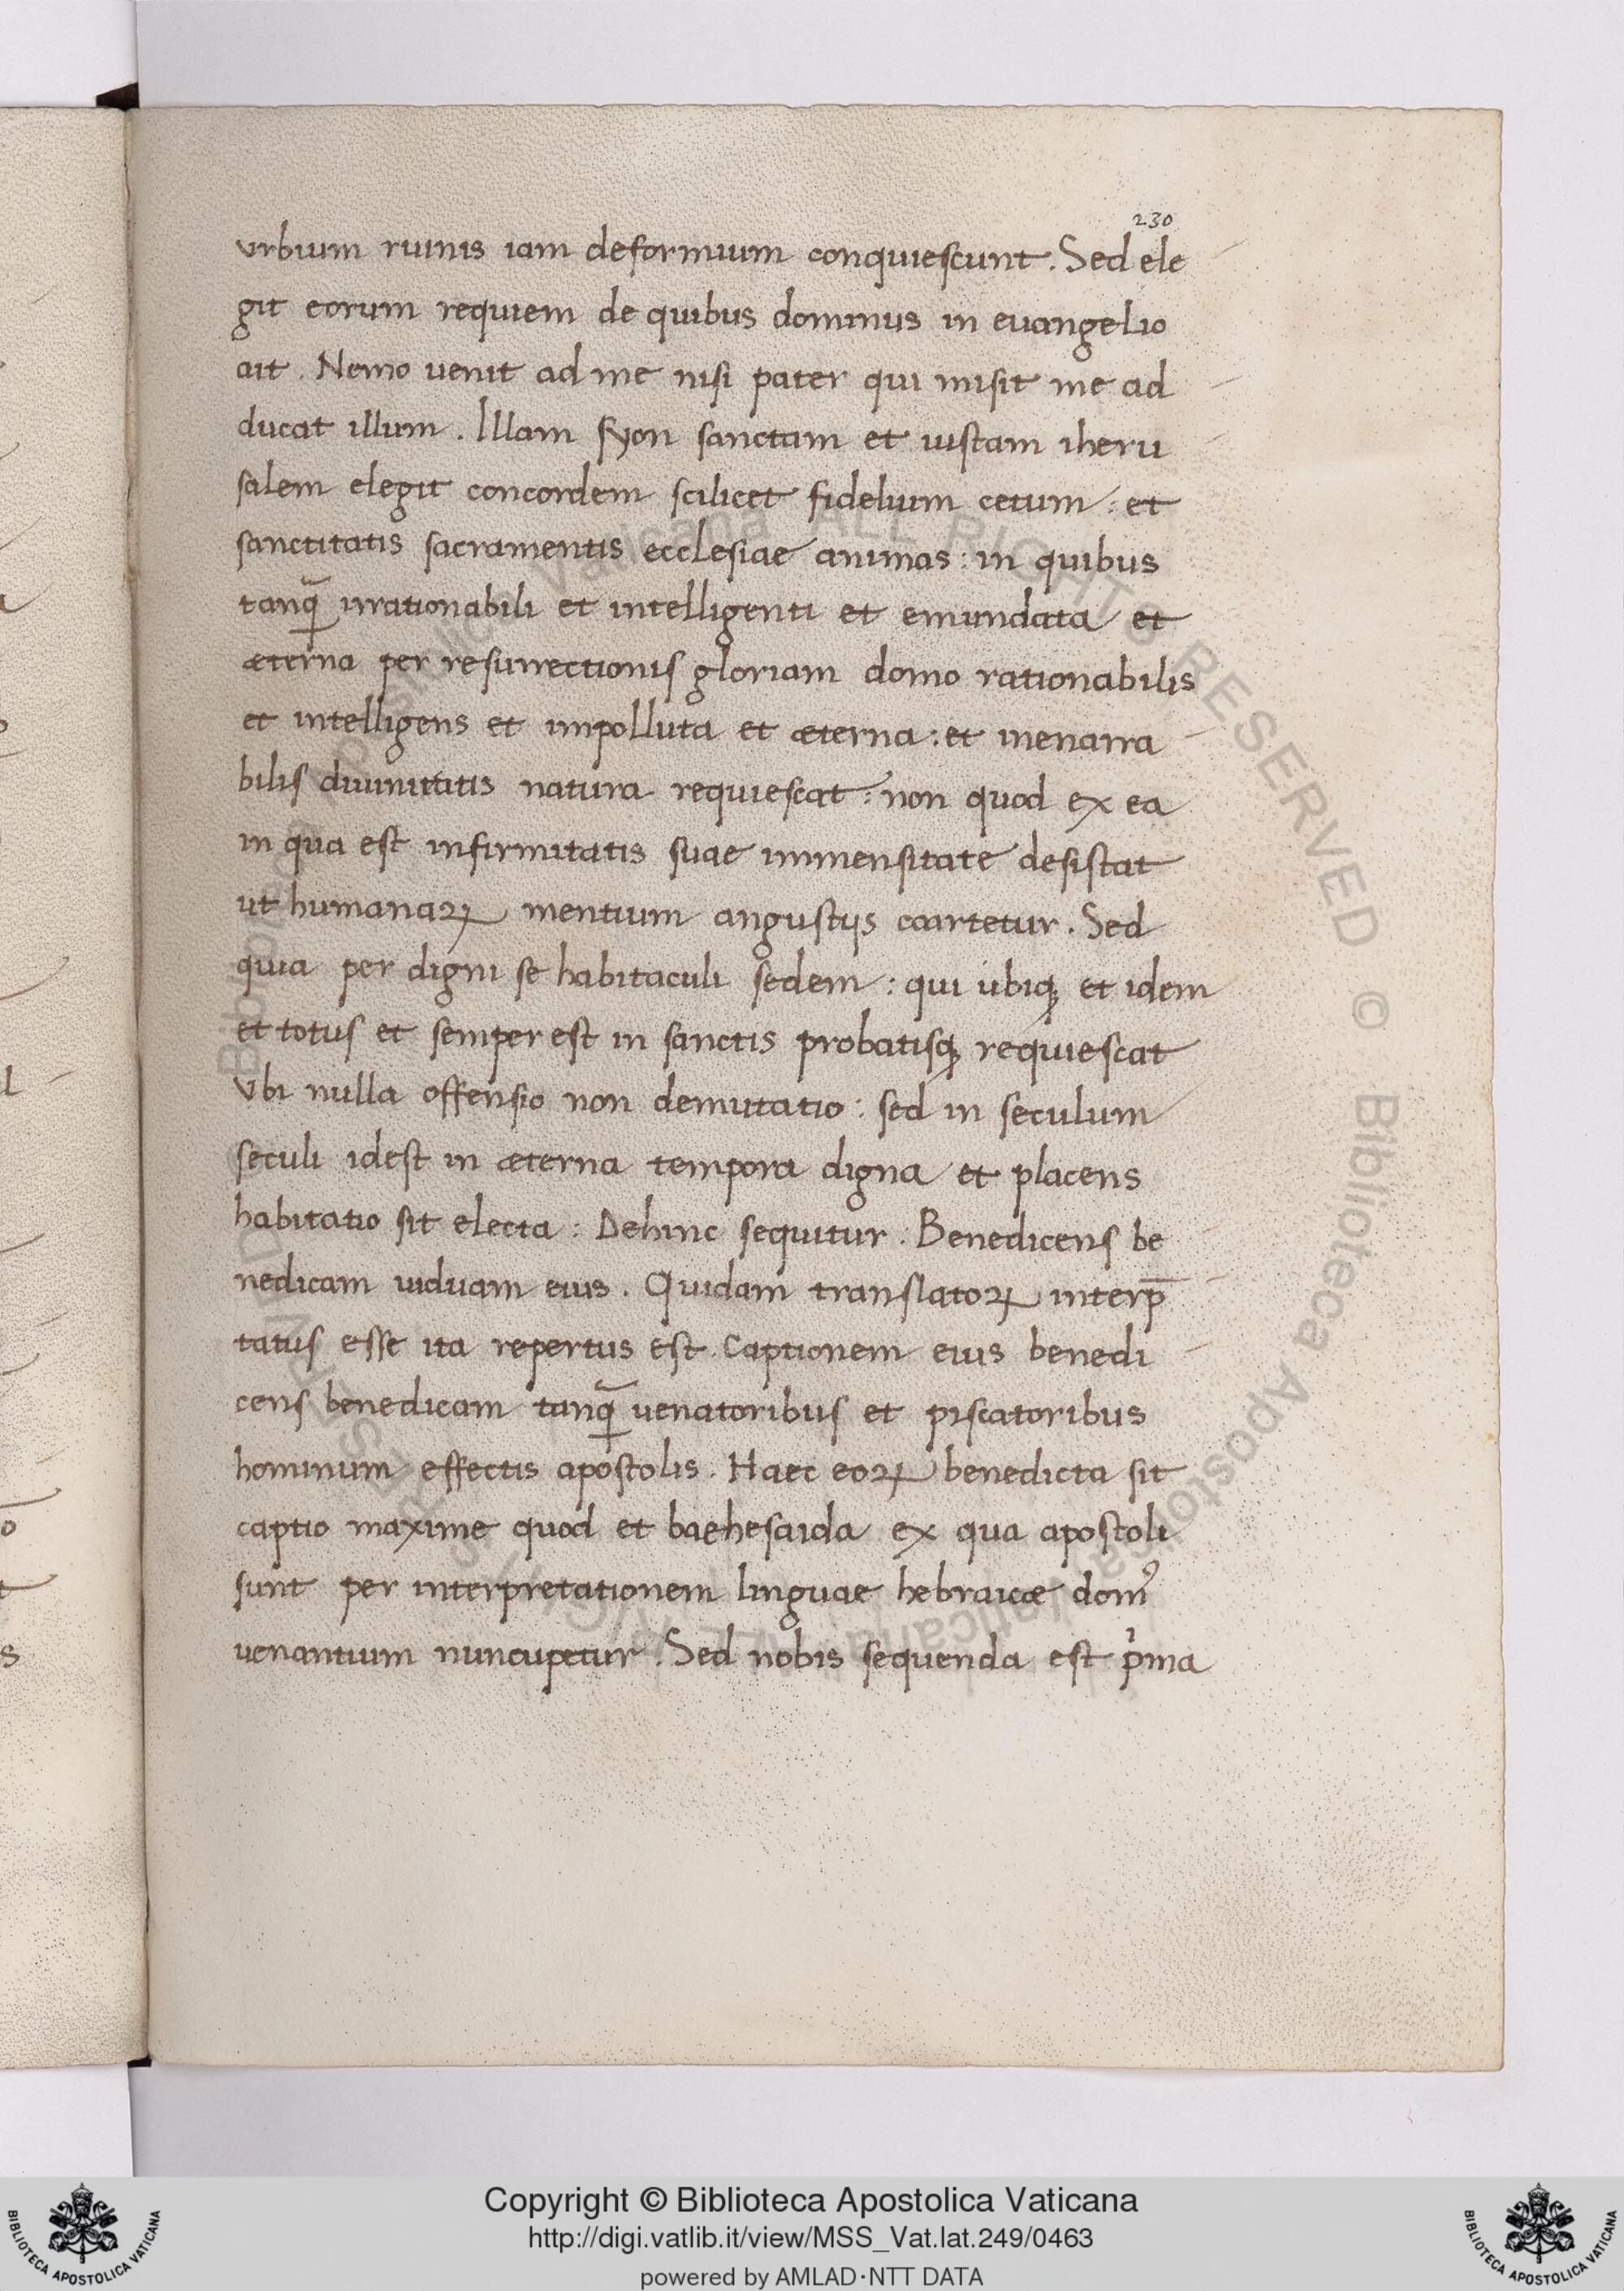 230
vrbium ruinis iam deformium conquiescunt. Sed ele
git eorum requiem de quibus dominus in euangelio
ait. Nemo uenit ad me nisi pater qui misit me ad
ducat illum. Illam syon sanctam et iustam iheru
salem elegit concordem scilicet fidelium cetum: et
sanctitatis sacramentis ecclesiae animas: in quibus
tanꝗ̃ irrationabili et intelligenti et emundata et
æterna per resurrectionis gloriam domo rationabilis
et intelligens et impolluta et æterna: et inenarra
bilis diuinitatis natura requiescat: non quod ex ea
in qua est infirmitatis suae immensitate desistat
ut humanaꝝ mentium angustijs coartetur. Sed
quia per digni se habitaculi sedem: qui ubiqꝫ et idem
et totus et semper est in sanctis probatisqꝫ requiescat
Vbi nulla offensio non demutatio: sed in seculum
seculi idest in æterna tempora digna et placens
habitatio sit electa: Dehinc sequitur: Benedicens be
nedicam uiduam eius. Quidam translatoꝝ interp̄
tatus esse ita repertus est. Captionem eius benedi
cens benedicam tanꝗ̃ uenatoribus et piscatoribus
hominum effectis apostolis. Haec eoꝝ benedicta sit
captio maxime quod et baehesaida ex qua apostoli
sunt per interpretationem linguae hebraicæ domꝰ
uenantium nuncupetur. Sed nobis sequenda est pͥma
Copyright © Biblioteca Apostolica Vaticana
http://digi.vatlib.it/view/MSS_Vat.lat.249/0463
powered by AMLAD·NTT DATA
BIBLIOTECA APOSTOLICA VATICANA
BIBLIOTECA APOSTOLICA VATICANA